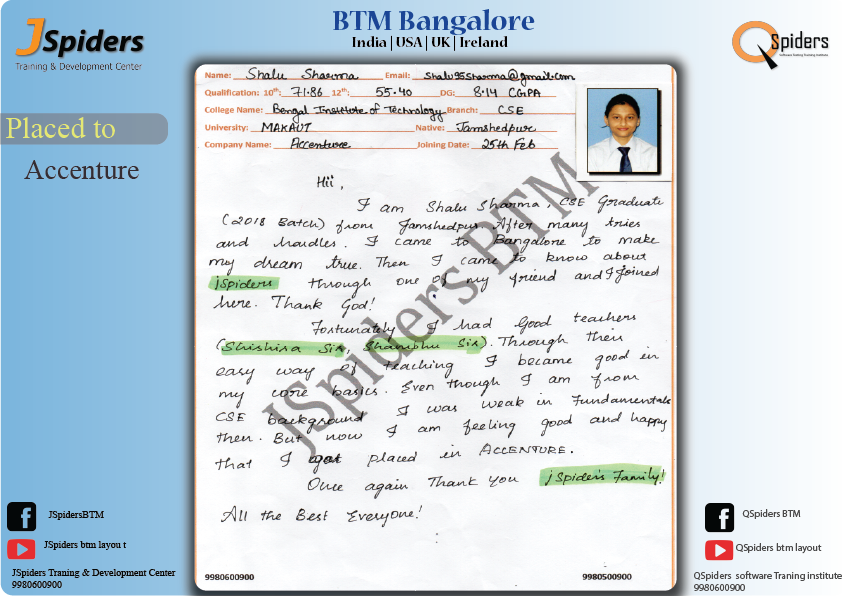 JSpiders
Training & Development Center
BTM Bangalore
India | USA | UK | Ireland
QSpiders
Software Testing Training Institute
Placed to
Accenture
Name: Shalu Sharma Email: shalu95sharma@gmail.com
Qualification: 10th: 71.86 12th: 55.40 DG: 8.14 CGPA
College Name: Bengal Institute of Technology Branch: CSE
University: MAKAUT Native: Jamshedpur
Company Name: Accenture Joining Date: 25th Feb
Hii,
I am Shalu Sharma, CSE Graduate
(2018 Batch) from Jamshedpur. After many tries
and hurdles. I came to Bangalore to make
my dream true. Then I came to know about
jSpiders through one of my friend and I joined
here. Thank God!
Fortunately I had Good teachers
(Shishira Sir, Shambhu Sir). Through their
easy way of teaching I became good in
my core basics. Even though I am from
CSE background I was weak in Fundamentals
then. But now I am feeling good and happy
that I got placed in ACCENTURE.
Once again Thank you jSpiders Family!
All the Best Everyone!
JSpiders BTM
9980600900 9980500900
JSpidersBTM
JSpiders btm layou t
JSpiders Traning & Development Center
9980600900
QSpiders BTM
QSpiders btm layout
QSpiders software Traning institute
9980600900